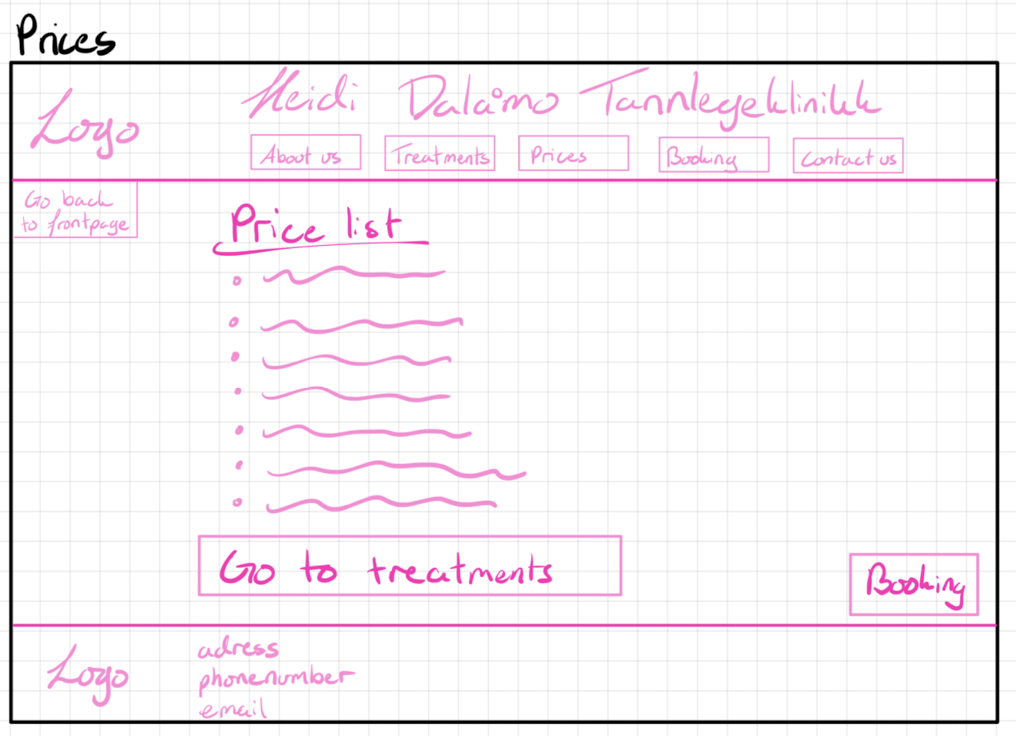 Prices
Logo
Heidi Dalåmo Tannlegeklinikk
About us Treatments Prices Booking Contact us
Go back
to frontpage
Price list
Go to treatments
Booking
Logo
adress
phonenumber
email